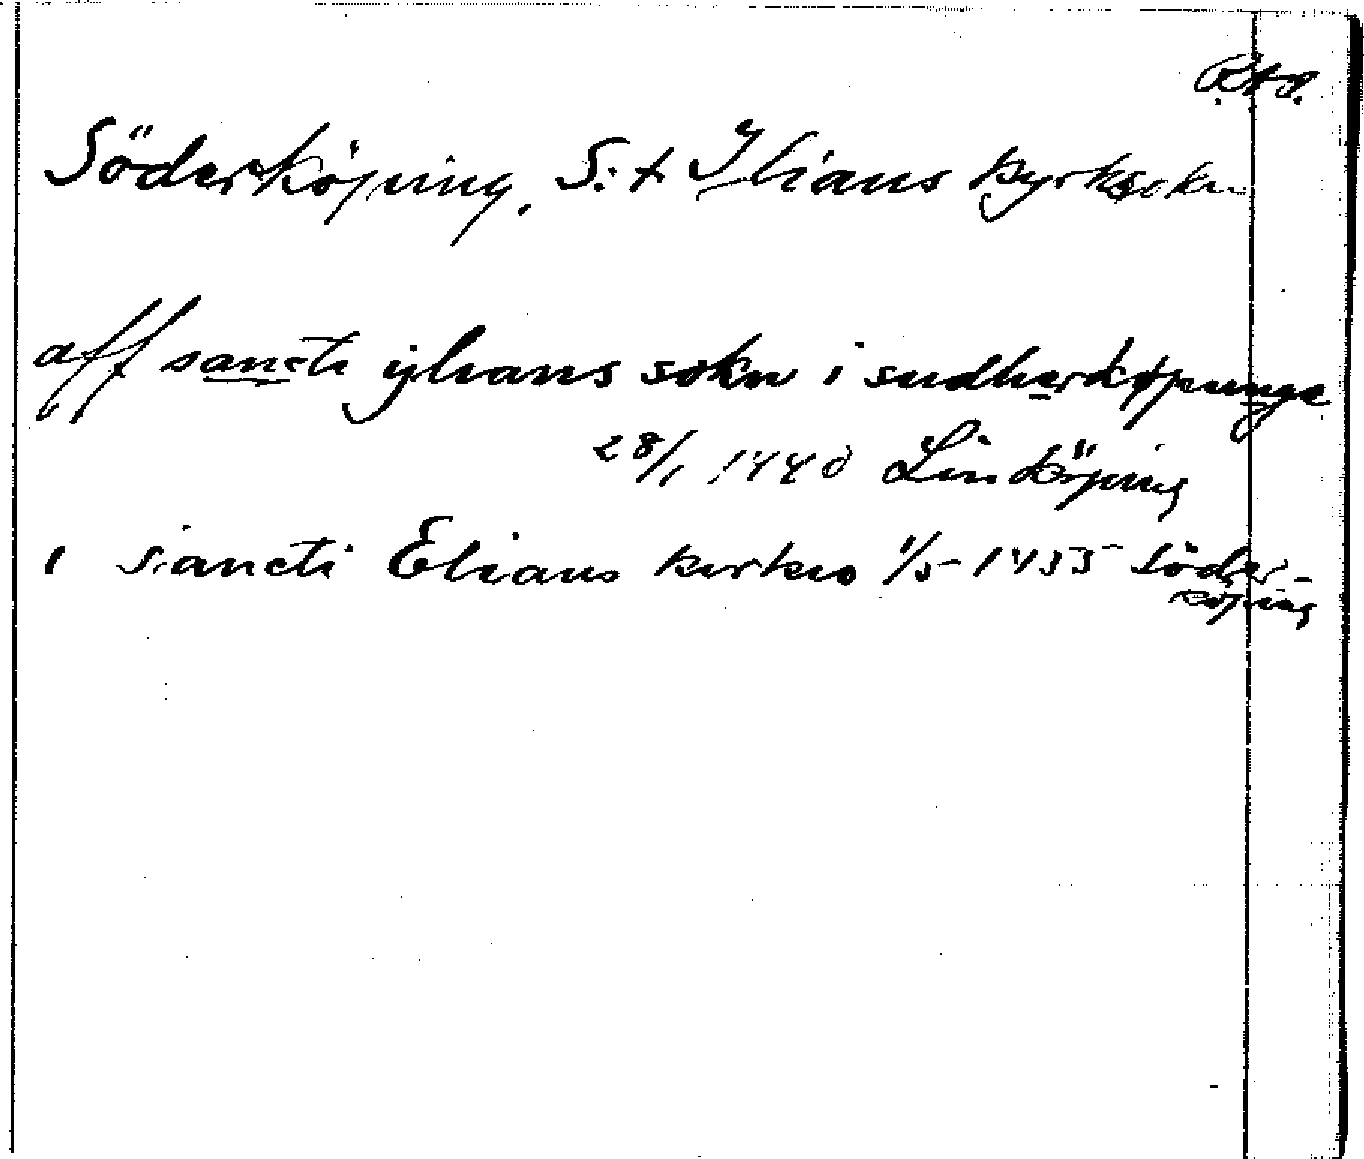 R.A.
Söderköping, S:t Ilians kyrksokn
aff sancti ylians sokn i sudherköpunge
28/1 1440 Linköping
i sancti Elians kirkio 1/5 1455 Söder-
köping